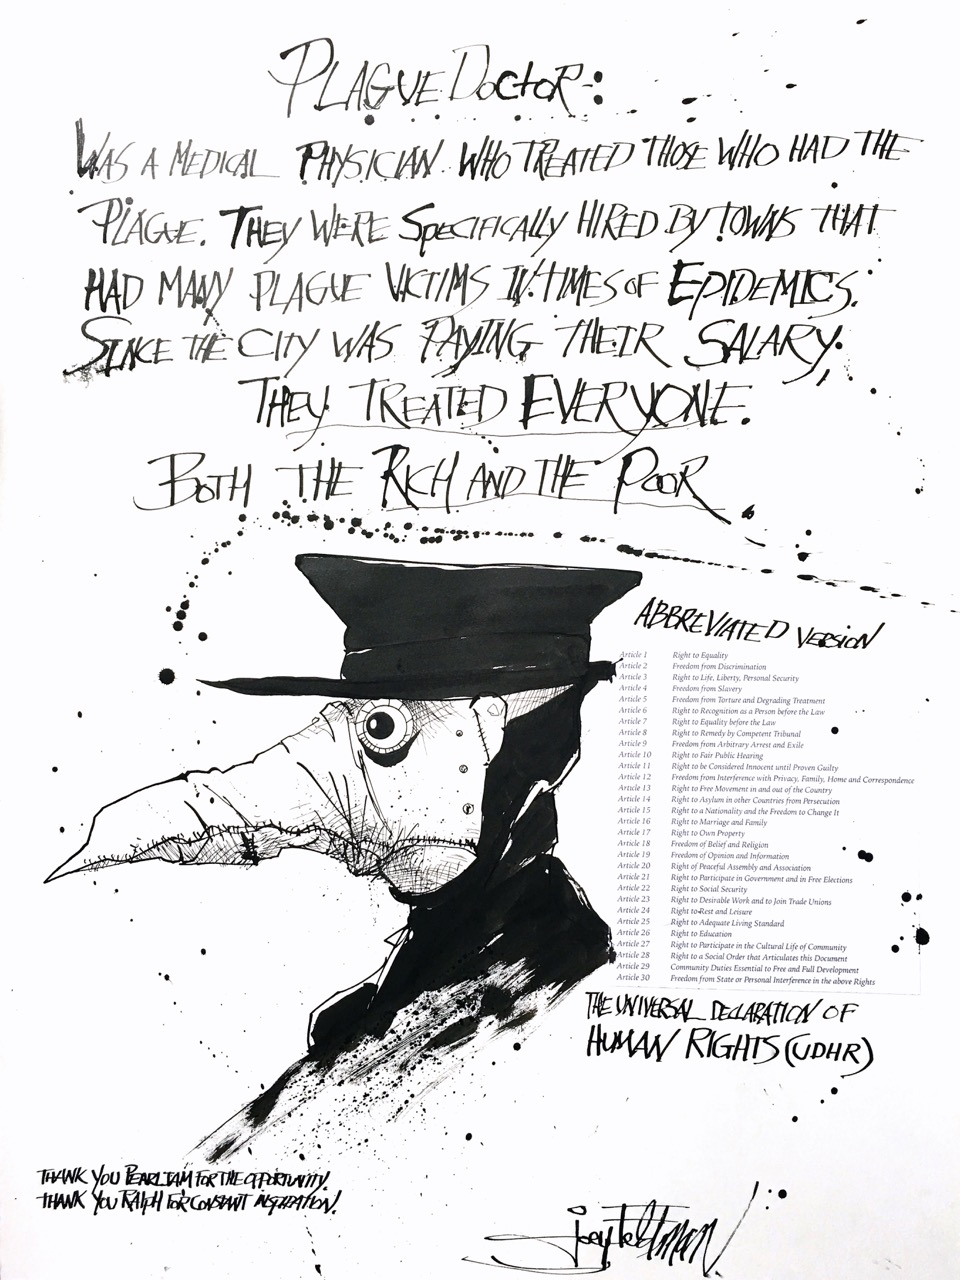 PLAGUE DOCTOR:
WAS A MEDICAL PHYSICIAN WHO TREATED THOSE WHO HAD THE
PLAGUE. THEY WERE SPECIFICALLY HIRED BY TOWNS THAT
HAD MANY PLAGUE VICTIMS IN TIMES OF EPIDEMICS.
SINCE THE CITY WAS PAYING THEIR SALARY,
THEY TREATED EVERYONE.
BOTH THE RICH AND THE POOR
ABBREVIATED VERSION
Article 1 Right to Equality
Article 2 Freedom from Discrimination
Article 3 Right to Life, Liberty, Personal Security
Article 4 Freedom from Slavery
Article 5 Freedom from Torture and Degrading Treatment
Article 6 Right to Recognition as a Person before the Law
Article 7 Right to Equality before the Law
Article 8 Right to Remedy by Competent Tribunal
Article 9 Freedom from Arbitrary Arrest and Exile
Article 10 Right to Fair Public Hearing
Article 11 Right to be Considered Innocent until Proven Guilty
Article 12 Freedom from Interference with Privacy, Family, Home and Correspondence
Article 13 Right to Free Movement in and out of the Country
Article 14 Right to Asylum in other Countries from Persecution
Article 15 Right to a Nationality and the Freedom to Change It
Article 16 Right to Marriage and Family
Article 17 Right to Own Property
Article 18 Freedom of Belief and Religion
Article 19 Freedom of Opinion and Information
Article 20 Right of Peaceful Assembly and Association
Article 21 Right to Participate in Government and in Free Elections
Article 22 Right to Social Security
Article 23 Right to Desirable Work and to Join Trade Unions
Article 24 Right to Rest and Leisure
Article 25 Right to Adequate Living Standard
Article 26 Right to Education
Article 27 Right to Participate in the Cultural Life of Community
Article 28 Right to a Social Order that Articulates this Document
Article 29 Community Duties Essential to Free and Full Development
Article 30 Freedom from State or Personal Interference in the above Rights
THE UNIVERSAL DECLARATION OF
HUMAN RIGHTS (UDHR)
THANK YOU PEARL JAM FOR THE OPPORTUNITY!
THANK YOU RALPH FOR CONSTANT INSPIRATION!
joey feldman